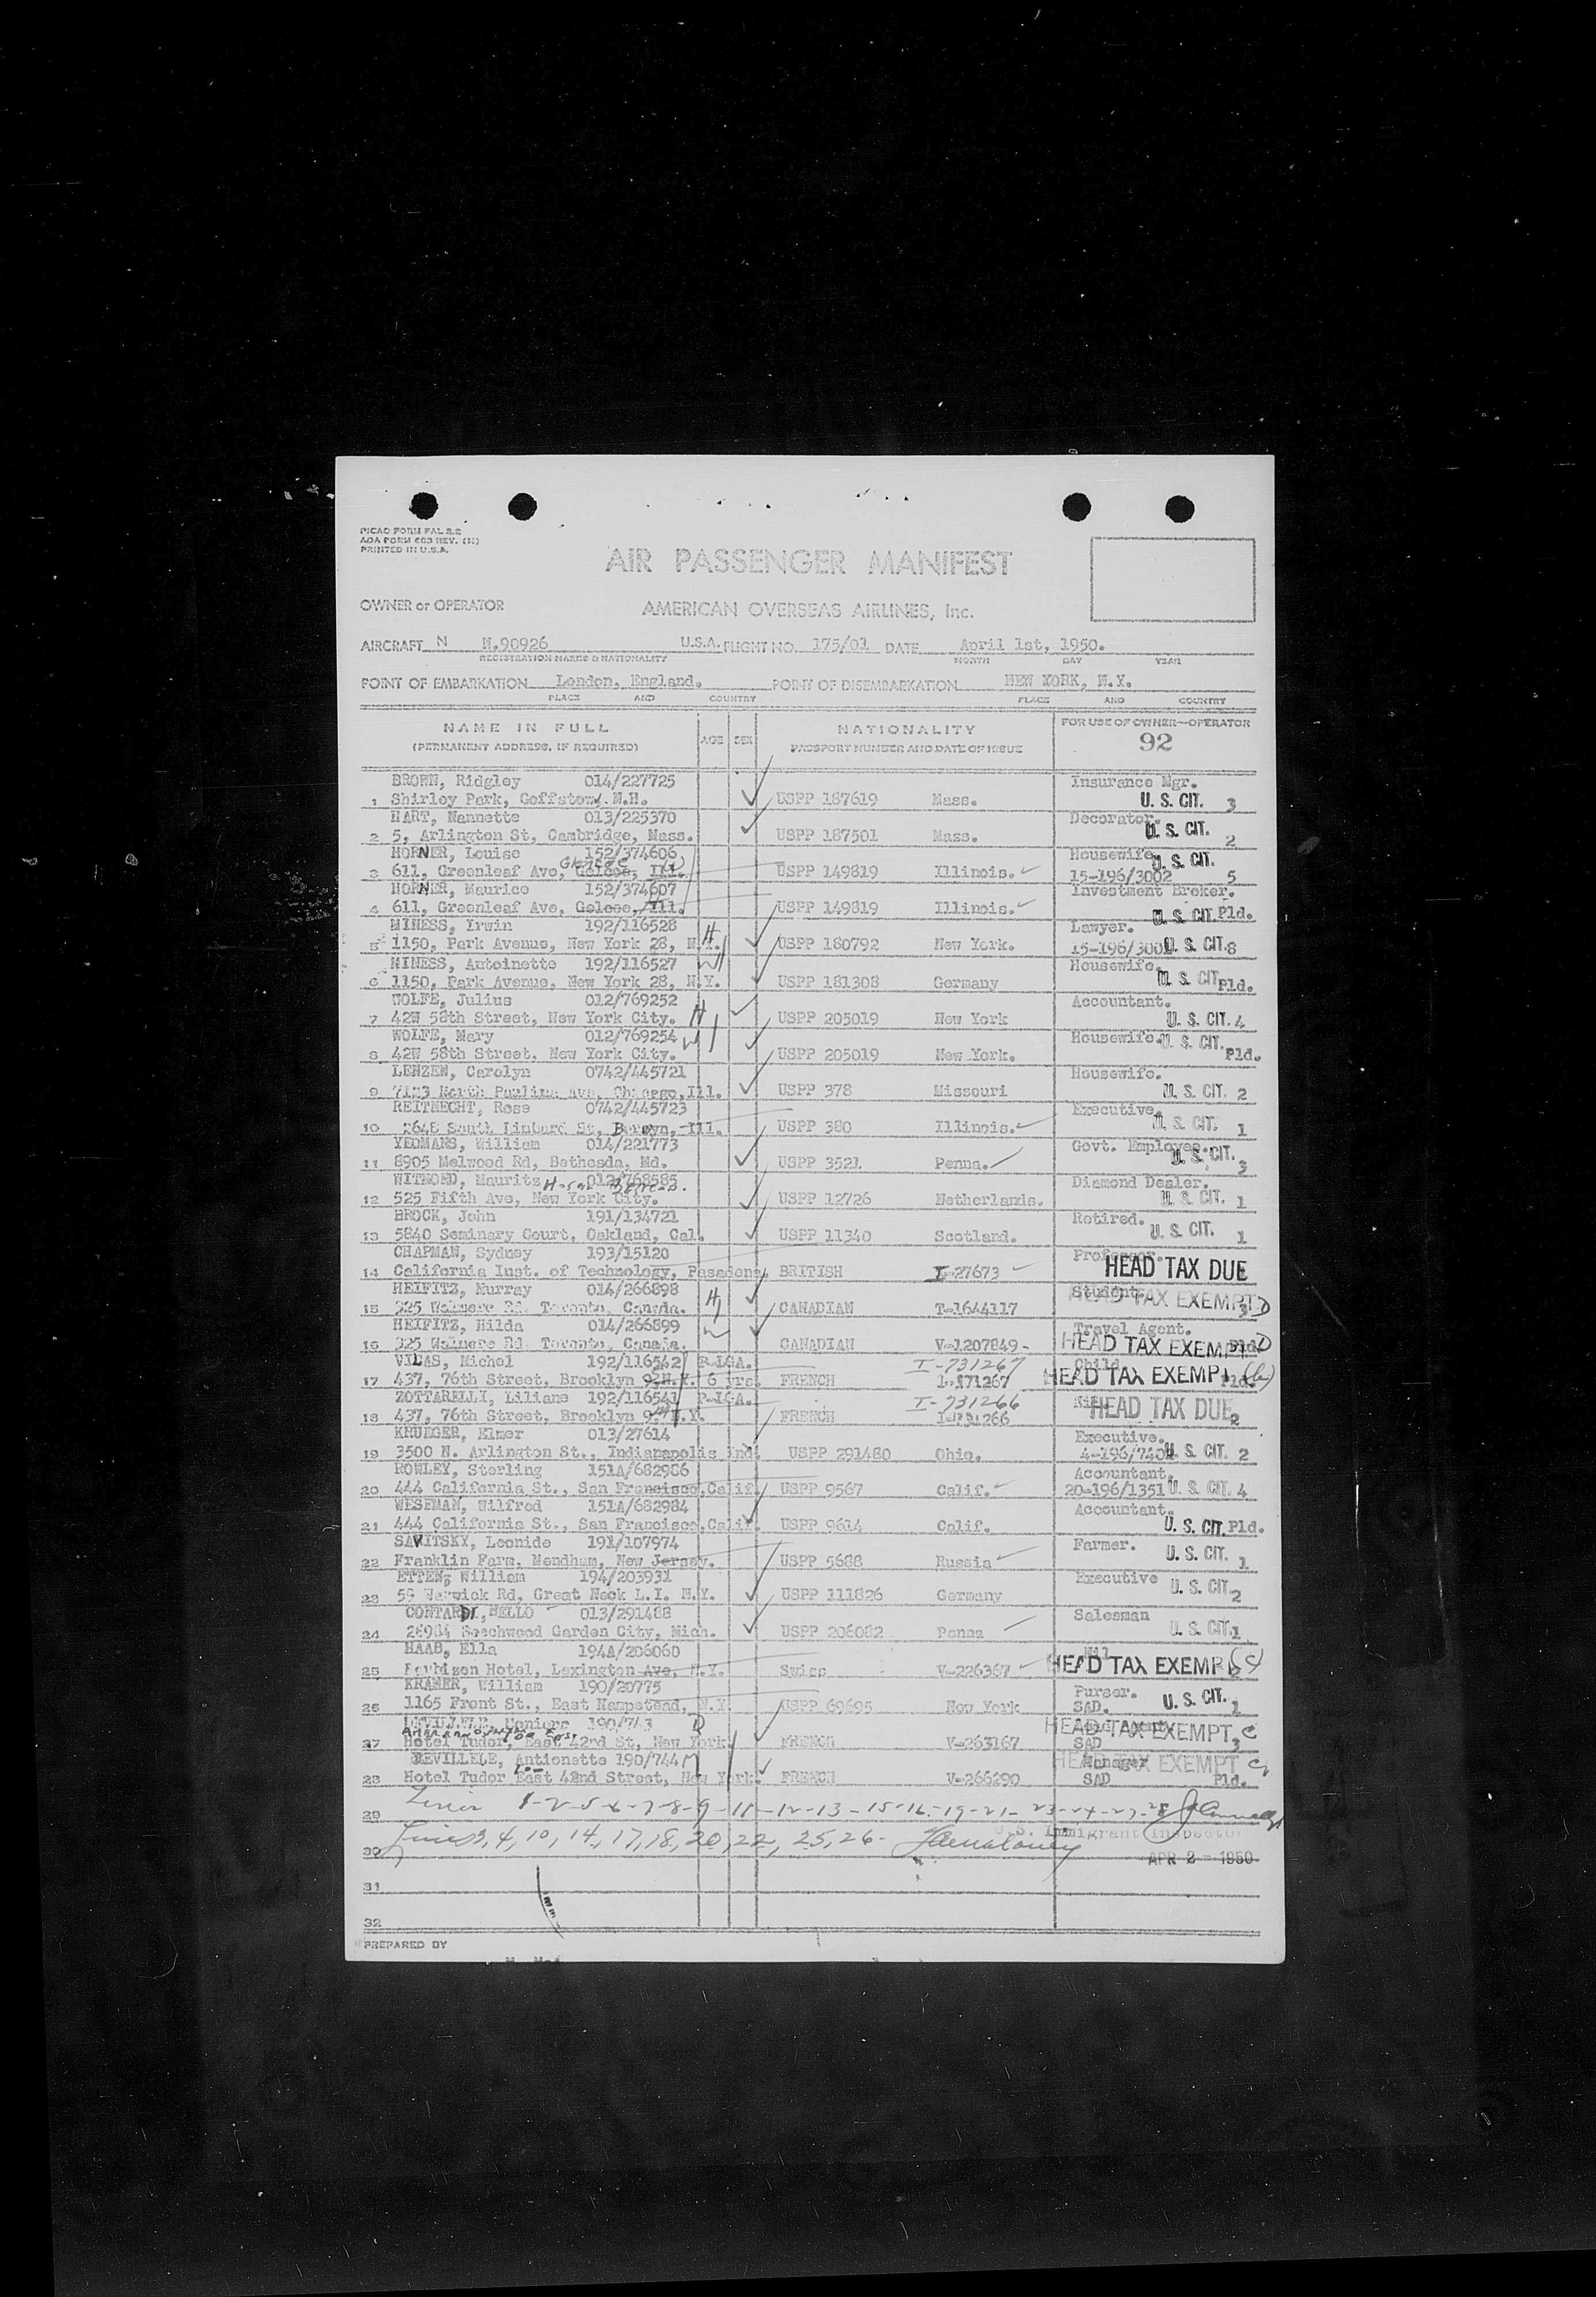 PICAO FORM FAL 2.2
AOA FORM 603 REV. (H)
PRINTED IN U.S.A.
AIR PASSENGER MANIFEST
OWNER or OPERATOR AMERICAN OVERSEAS AIRLINES, Inc.
AIRCRAFT N N.90926 U.S.A. FLIGHT NO. 175/01 DATE April 1st, 1950.
REGISTRATION MARKS & NATIONALITY MONTH DAY YEAR
POINT OF EMBARKATION London, England. POINT OF DISEMBARKATION NEW YORK, N.Y.
PLACE AND COUNTRY PLACE AND COUNTRY
NAME IN FULL AGE SEX NATIONALITY FOR USE OF OWNER—OPERATOR
(PERMANENT ADDRESS, IF REQUIRED) PASSPORT NUMBER AND DATE OF ISSUE 92
BROWN, Ridgley 014/227725 Insurance Mgr.
1 Shirley Park, Goffstown. N.H. USPP 187619 Mass. U. S. CIT. 3
HART, Nannette 013/225370 Decorator.
2 5, Arlington St, Cambridge, Mass. USPP 187501 Mass. U. S. CIT. 2
HORNER, Louise 152/374606 Housewife U. S. CIT.
Glencoe
3 611, Greenleaf Ave, Gelcoe, Ill. USPP 149819 Illinois. 15-196/3002 5
HORNER, Maurice 152/374607 Investment Broker.
4 611, Greenleaf Ave, Gelcoe, Ill. USPP 149819 Illinois. U. S. CIT. Pld.
MINESS, Irwin 192/116528 H Lawyer.
5 1150, Park Avenue, New York 28, N.Y. USPP 180792 New York. 15-196/3001 U. S. CIT. 8
MINESS, Antoinette 192/116527 W Housewife.
6 1150, Park Avenue, New York 28, N.Y. USPP 181308 Germany U. S. CIT. Pld.
WOLFE, Julius 012/769252 H Accountant.
7 42W 58th Street, New York City. USPP 205019 New York U. S. CIT. 4
WOLFE, Mary 012/769254 W Housewife. U. S. CIT.
8 42W 58th Street, New York City. USPP 205019 New York. Pld.
LENZEN, Carolyn 0742/445721 Housewife.
9 7123 North Paulina Ave, Chicago, Ill. USPP 378 Missouri U. S. CIT. 2
REITNECHT, Rose 0742/445723 Executive.
10 2648 South Limbard St, Berwyn, Ill. USPP 380 Illinois. U. S. CIT. 1
YEOMANS, William 014/221773 Govt. Employee.
11 8905 Melwood Rd, Bethesda, Md. USPP 3521 Penna. U. S. CIT. 3
WITMOND, Mauritz 012/768585 Diamond Dealer.
12 525 Fifth Ave, New York City. USPP 12726 Netherlands. U. S. CIT. 1
BROCK, John 191/134721 Retired.
13 5840 Seminary Court, Oakland, Cal. USPP 11340 Scotland. U. S. CIT. 1
CHAPMAN, Sydney 193/15120 Professor.
14 California Inst. of Technology, Pasadena. BRITISH I-27673 HEAD TAX DUE
HEIFITZ, Murray 014/266898 H Student
15 325 Walmere Rd. Toronto, Canada. CANADIAN T-1644117 HEAD TAX EXEMPT 3 D
HEIFITZ, Hilda 014/266899 W Travel Agent.
16 325 Walmere Rd. Toronto, Canada. CANADIAN V-1207849- HEAD TAX EXEMPT Pld. D
VIDAS, Michel 192/116542 P-IGA. I-731267 Child
17 437, 76th Street, Brooklyn 9, N.Y. 6 yrs. FRENCH HEAD TAX EXEMPT Pld.
ZOTTARELLI, Liliane 192/116541 P-IGA. I-731266 Nil
18 437, 76th Street, Brooklyn 9, N.Y. FRENCH I-731266 HEAD TAX DUE 2
KRUEGER, Elmer 013/27614 Executive.
19 3500 N. Arlington St., Indianapolis Ind. USPP 291480 Ohio. 4-196/7404 U. S. CIT. 2
ROWLEY, Sterling 151A/682986 Accountant.
20 444 California St., San Francisco, Calif. USPP 9567 Calif. 20-196/1351 U. S. CIT. 4
WESEMAN, Wilfred 151A/682984 Accountant.
21 444 California St., San Francisco, Calif. USPP 9614 Calif. U. S. CIT. Pld.
SAVITSKY, Leonide 191/107974 Farmer.
22 Franklin Farm, Mendham, New Jersey. USPP 5688 Russia U. S. CIT. 1
ETTEN, William 194/203931 Executive
23 59 Warwick Rd, Great Neck L.I. N.Y. USPP 111826 Germany U. S. CIT. 2
CONTARDI, NELLO 013/291488 Salesman
24 28984 Beechwood Garden City, Mich. USPP 206082 Penna U. S. CIT. 1
HAAB, Ella 194A/206060 Nil
25 Barbizon Hotel, Lexington Ave, N.Y. Swiss V-226367 HEAD TAX EXEMPT (c)
KRAMER, William 190/20775 Purser.
26 1165 Front St., East Hampstead, N.Y. USPP 69695 New York SAD. U. S. CIT. 1
DEVILLELE, 190/743
27 Hotel Tudor, East 42nd St, New York. FRENCH V-263167 SAD HEAD TAX EXEMPT 3 C
DEVILLELE, Antionette 190/744 Manager
28 Hotel Tudor East 42nd Street, New York. FRENCH V-266290 SAD HEAD TAX EXEMPT Pld.
29 Lines 1-2-5-6-7-8-9-11-12-13-15-16-19-21-23-24-27-28
30 Lines 3, 4, 10, 14, 17, 18, 20, 22, 25, 26- U.S. Immigrant Inspector
APR 2 - 1950
31
32
PREPARED BY